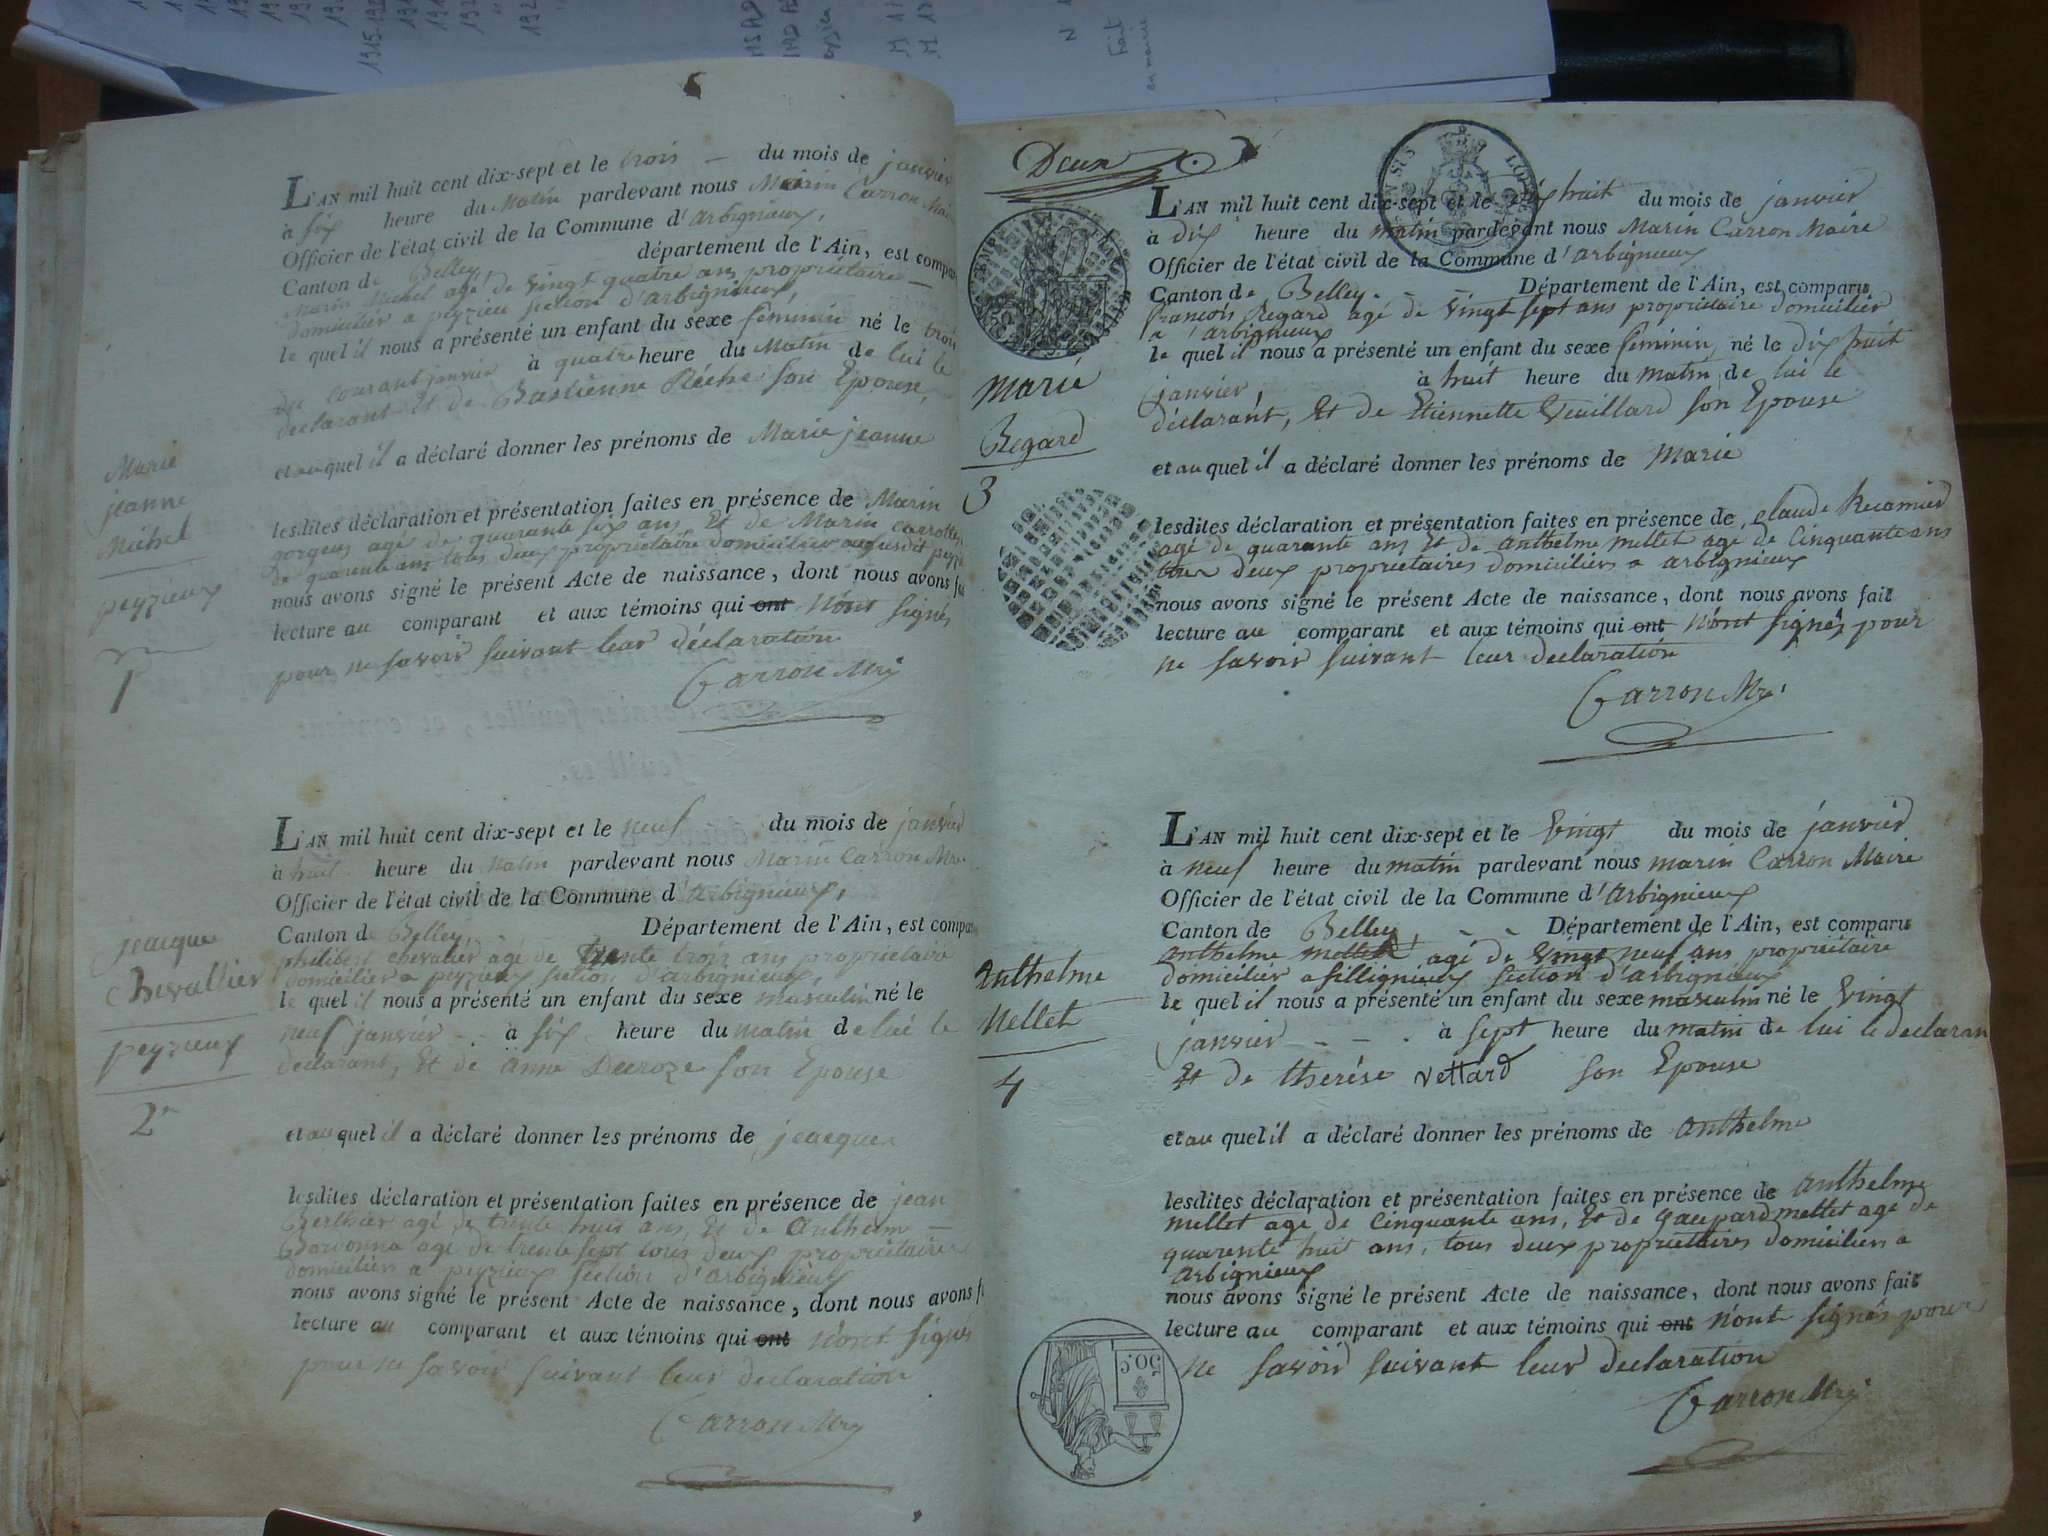 1915-192
N 1
Fait
en mairie
L'AN mil huit cent dix-sept et le trois – du mois de janvier
à six heure du Matin pardevant nous Marin Carron Mai
Officier de l'état civil de la Commune d'Arbignieux,
Canton de Belley département de l'Ain, est compa
Marin Michel agé de vingt quatre ans propriétaire –
domicilier a peyzieu section d'arbignieux,
le quel il nous a présenté un enfant du sexe feminin né le trois
du courant janvier à quatre heure du Matin de lui le
déclarant Et de Bastienne son Epouse,
et au quel il a déclaré donner les prénoms de Marie jeanne
lesdites déclaration et présentation faites en présence de Marin
gorgeus agé de quarante six ans Et de Marin Carrotte
de quarente ans tous deux propriétaire domicilier au susdit peyz
nous avons signé le présent Acte de naissance, dont nous avons fa
lecture au comparant et aux témoins qui ont N'ont signés
pour ne savoir suivant leur déclaration
Carron Mre
Marie
jeanne
Michel
peyzieux
1
L'AN mil huit cent dix-sept et le neuf du mois de janvier
à huit heure du Matin pardevant nous Marin Carron Mre
Officier de l'état civil de la Commune d'Arbignieux,
Canton de Belley Département de l'Ain, est compa
philibert chevalier agé de trente trois ans propriétaire
domicilier a peyzieux section d'arbignieux,
le quel il nous a présenté un enfant du sexe masculin né le
neuf janvier – - à six heure du matin de lui le
declarant, Et de anne Decroze son Epouse
et au quel il a déclaré donner les prénoms de jeacques
lesdites déclaration et présentation faites en présence de jean
Berthier agé de trente huit ans, Et de Anthelme –
Barvonna agé de trente sept tous deux propriétaires
domiciliers a peyzieux section d'Arbignieux
nous avons signé le présent Acte de naissance, dont nous avons f
lecture au comparant et aux témoins qui ont N'ont signés
pour ne savoir suivant leur declaration
Carron Mre
jeacque
Chevallier
peyzieux
2
Deux
L'AN mil huit cent dix-sept et le dix huit du mois de janvier
à dix heure du matin pardevant nous Marin Carron Maire
Officier de l'état civil de la Commune d'Arbignieux
Canton de Belley - - Département de l'Ain, est comparu
François Regard agé de vingt sept ans propriétaire domicilier
a arbignieux
le quel il nous a présenté un enfant du sexe feminin, né le dix huit
janvier, à huit heure du matin de lui le
déclarant, Et de Etiennette Veuillard son Epouse
et au quel il a déclaré donner les prénoms de Marie
lesdites déclaration et présentation faites en présence de claude Recamier
agé de quarante ans Et de anthelme mellet age de Cinquante ans
tous deux propriétaires domiciliers a arbignieux
nous avons signé le présent Acte de naissance, dont nous avons fait
lecture au comparant et aux témoins qui ont N'ont signés pour
ne savoir suivant leur declaration
Carron Mre
Marie
Regard
3
L'AN mil huit cent dix-sept et le Vingt du mois de janvier
à neuf heure du matin pardevant nous marin Carron Maire
Officier de l'état civil de la Commune d'Arbignieux
Canton de Belley, - - Département de l'Ain, est comparu
Anthelme mellet agé de vingt neuf ans propriétaire
domicilier a sillignieux section d'arbignieux
le quel il nous a présenté un enfant du sexe masculin né le Vingt
janvier – - . à sept heure du matin de lui le declaran
Et de therése vettard son Epouse
et au quel il a déclaré donner les prénoms de anthelme
lesdites déclaration et présentation faites en présence de anthelme
mellet age de Cinquante ans, Et de gaspard mellet age de
quarente huit ans, tous deux propriettaires domiciliers a
arbignieux
nous avons signé le présent Acte de naissance, dont nous avons fait
lecture au comparant et aux témoins qui ont N'ont signés pour
ne savoir suivant leur declaration
Carron Mre
Anthelme
Mellet
4
50.C